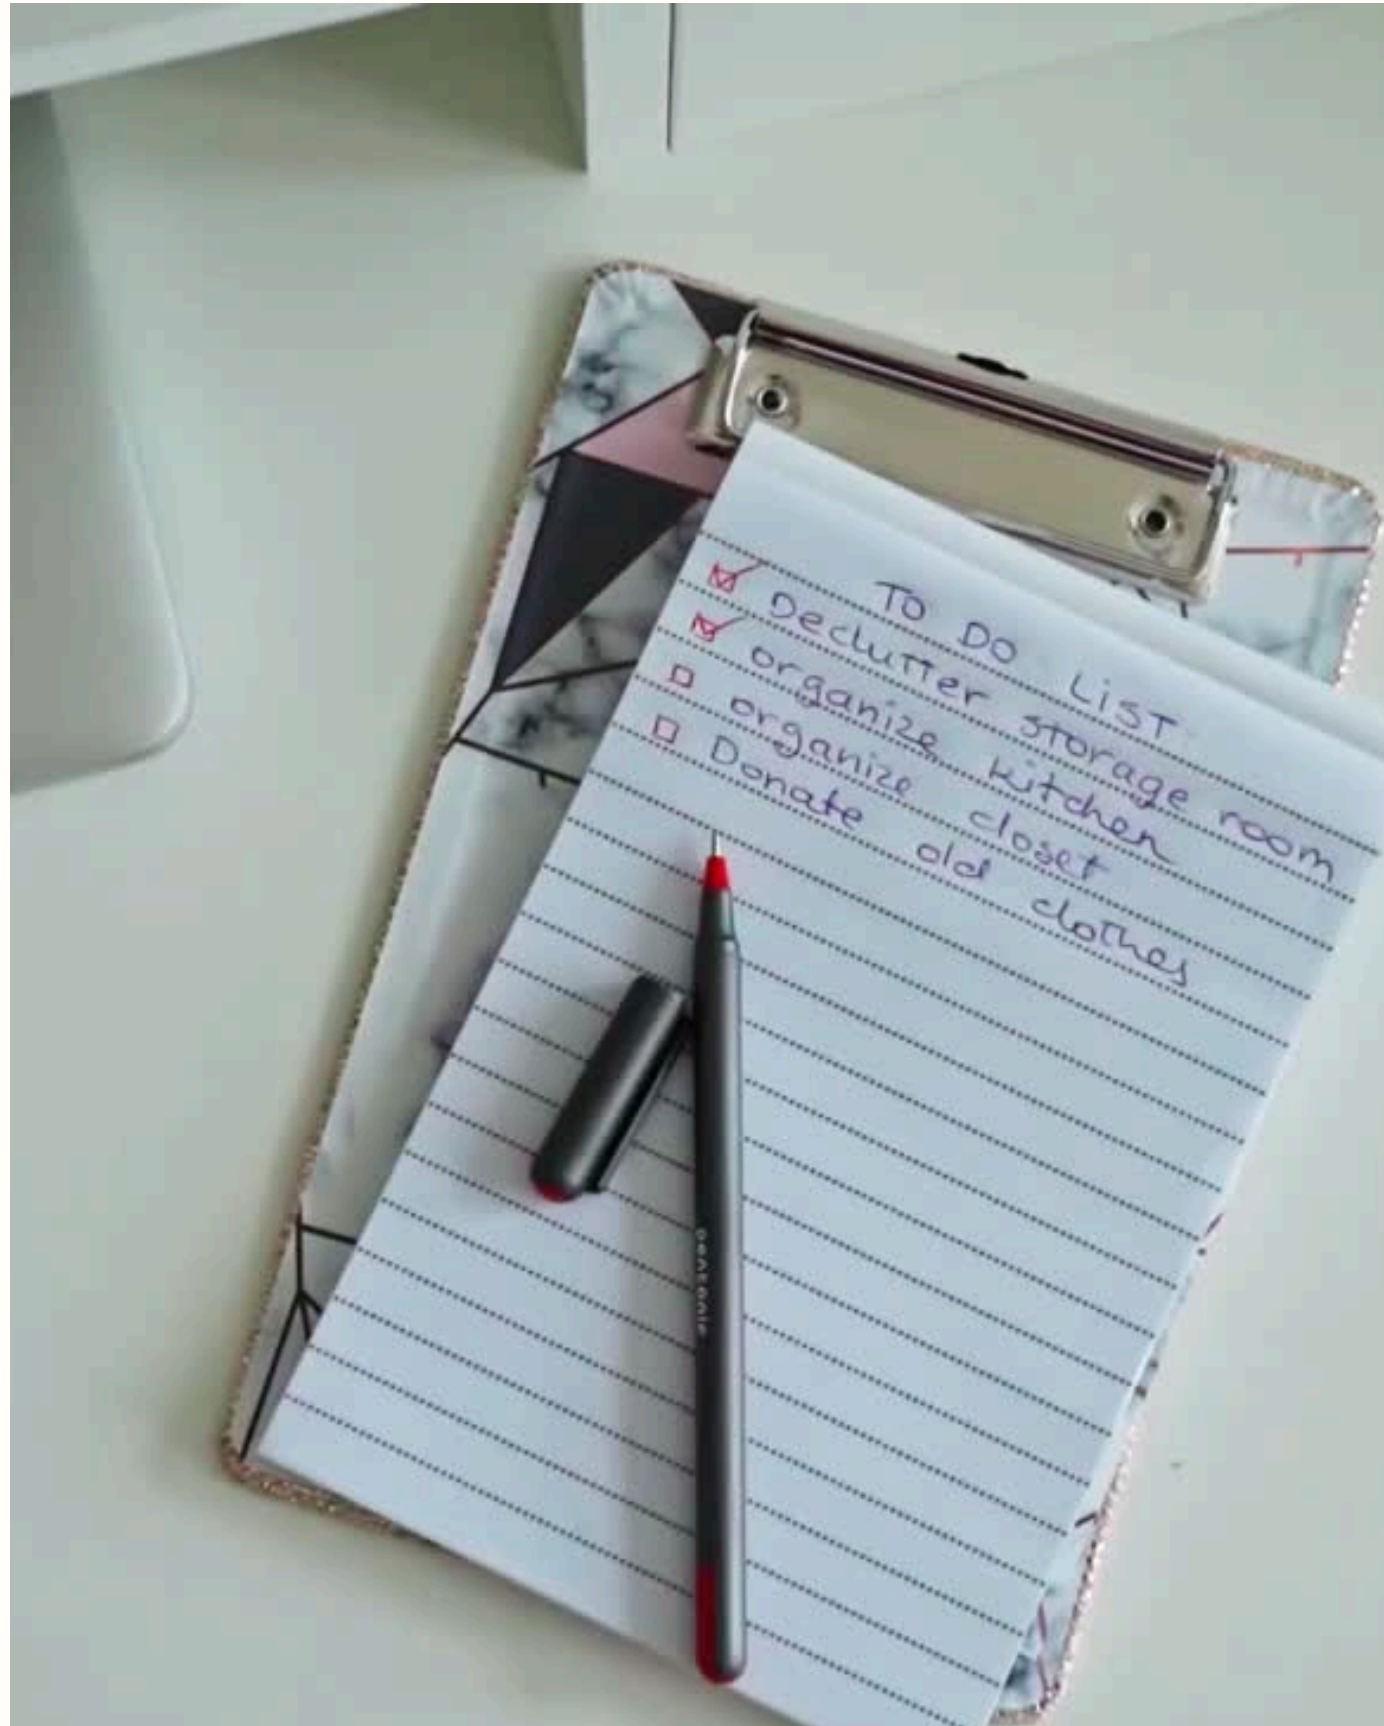 TO DO LIST
☑ Declutter storage room
☑ organize kitchen
☐ organize closet
☐ Donate old clothes
pentonic